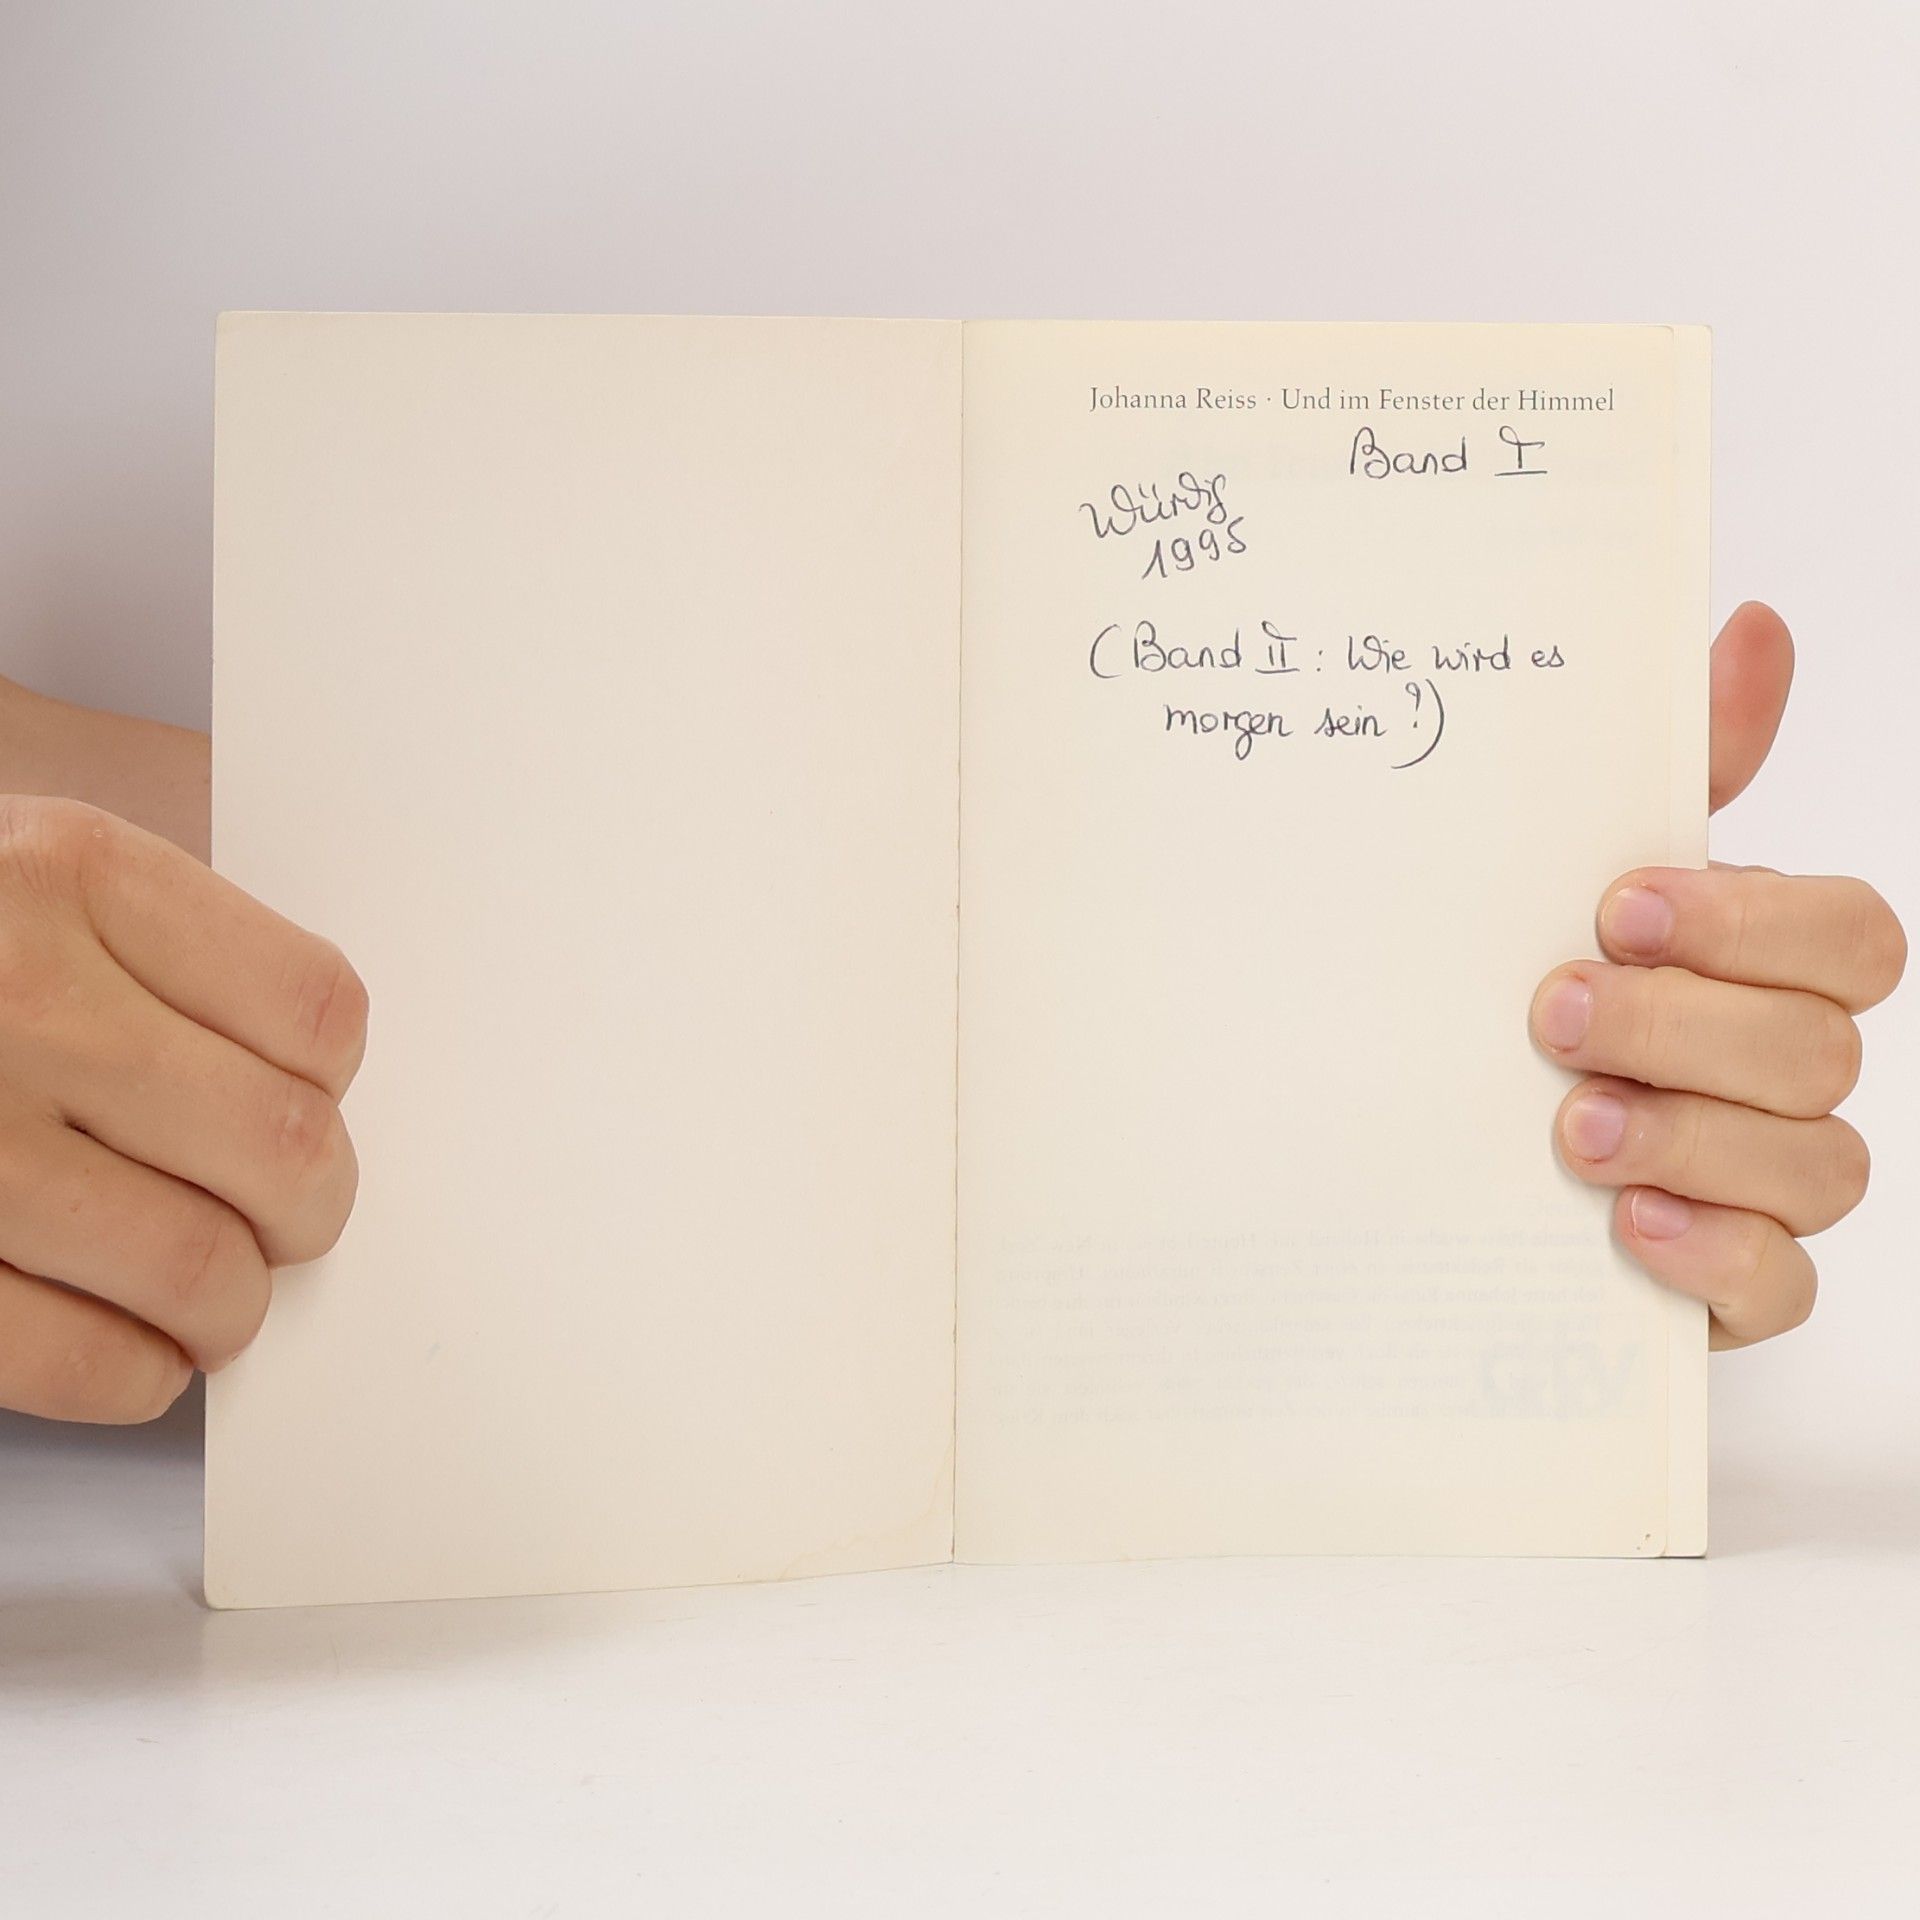 Johanna Reiss · Und im Fenster der Himmel
Band I
Würdig
1995
(Band II: Wie wird es
morgen sein?)